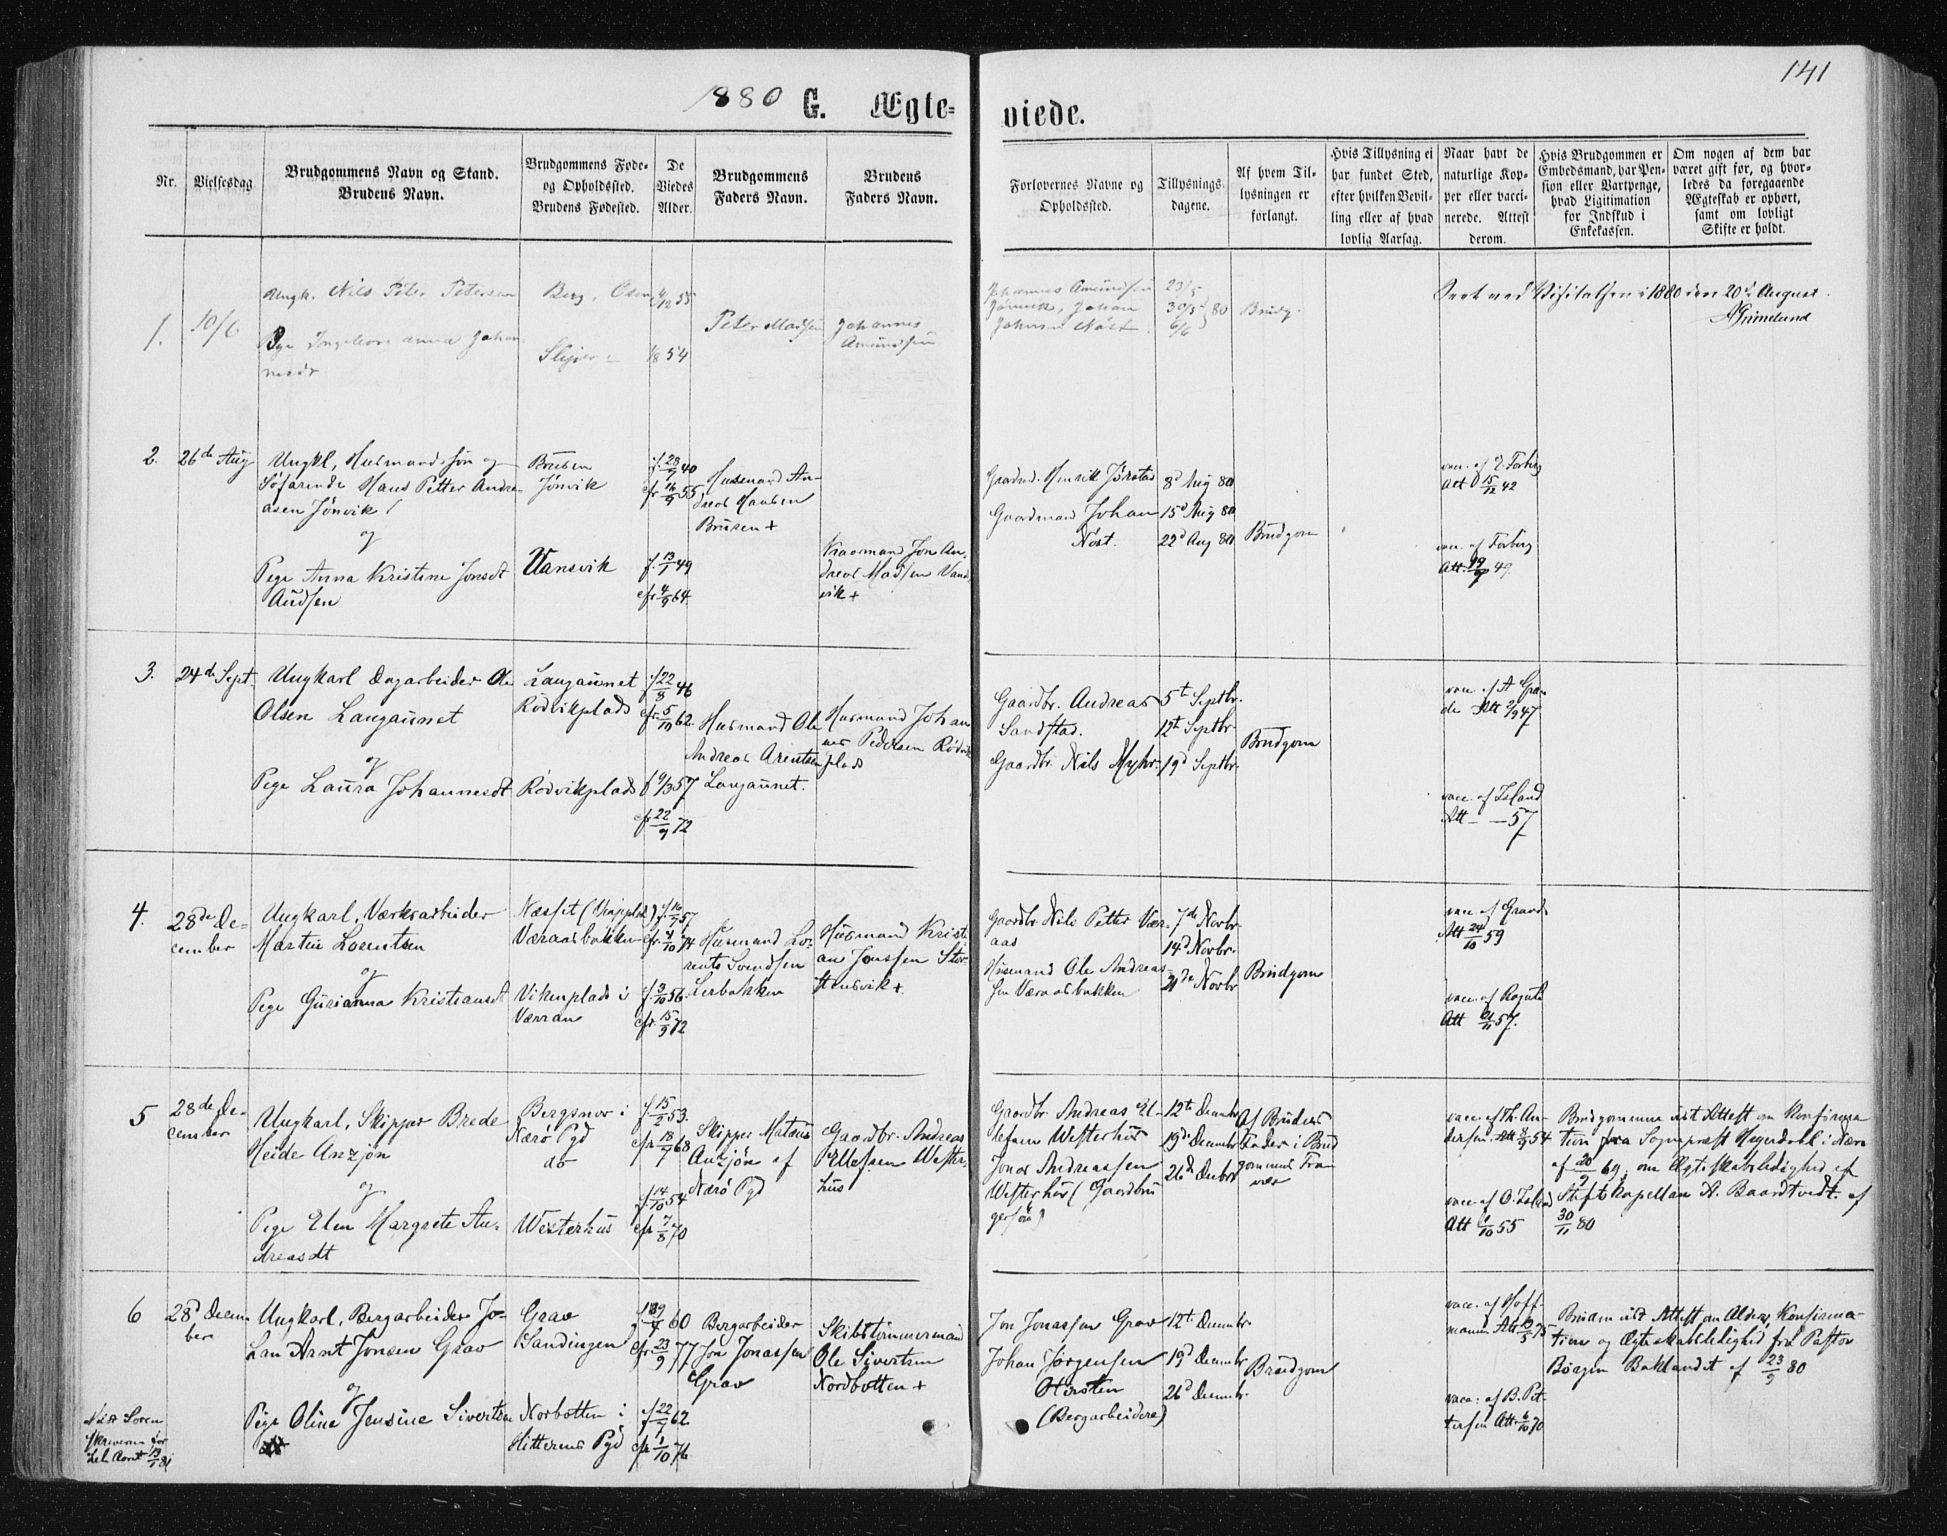 1880 G. Ægte-
viede.
141
Nr.
Vielsesdag
Brudgommens Navn og Stand.
Brudens Navn.
Brudgommens Føde-
og Opholdssted.
Brudens Fødested.
De
Viedes
Alder.
Brudgommens
Faders Navn.
Brudens
Faders Navn.
Forlovernes Navne og
Opholdssted.
Tillysnings-
dagene.
Af hvem Til-
lysningen er
forlangt.
Hvis Tillysning ei
har fundet Sted,
efter hvilken Bevil-
ling eller af hvad
lovlig Aarsag.
Naar havt de
naturlige Kop-
per eller vacci-
nerede. Attest
derom.
Hvis Brudgommen er
Embedsmand, har Pen-
sion eller Vartpenge,
hvad Ligitimation
for Indskud i
Enkekassen.
Om nogen af dem har
været gift før, og hvor-
ledes da foregaaende
Ægteskab er ophørt,
samt om lovligt
Skifte er holdt.
1. 10/6
Ungk. Nils Peter Petersen
Pige Ingeborg Anna Johan
Berg, Osen
4/12 55
1/8 54
Peter Madsen
Johannes
Amundsen
Johannes Amundsen
Johan
Johnsen Nøst
23/5
30/5 80
6/6
Brudg.
Seet ved Visitatsen i 1880 den 20de August.
AGrimelund
2. 26de Aug
Ungkl, Husmandssøn og
Søfarende Hans Petter Andre-
asen Jönvik
og
Pige Anna Kristine Jonsdt
Brusen
Jönvik
Vansvik
f. 13/7 49
cfr 4/9 64
Husmand An-
dreas Hansen
Brusen +
Husmand Jon An-
dreas Madsen Vans
vik +
Gaardmd. Henrik Jørstad
Gaardmand Johan
Nöst.
8d Aug 80
15d Aug 80
22d Aug 80
Brudgom
vacc. af E. Forbrg
Att 15/12 42
vacc. af Forbrg
Att. 19/9 49.
3. 24de Sept.
Ungkarl Dagarbeider Ole
Olsen Langaunet
og
Pige Laura Johannesdt
Langaunet
Rødvikplads
Rødvikplads
f 22/8 46
cfr 5/10 62
f 9/3 57
cfr 22/9 72
Husmand Ole
Andreas Arentsen
Langaunet.
Husmand Johan-
nes Pedersen Rødvik
plads
Gaardbr. Andreas
Sandstad.
Gaardbr. Nils Myhr.
5te Septbr.
12te Septbr.
19d Septbr.
Brudgom
vacc. af A Gran
de Att 2/9 47
vacc. af Island
Att - - 57
4. 28de De-
cember
Ungkarl, Værksarbeider
Martin Lorentsen
og
Pige Gurianna Kristiansdt
Næsset
Væraasbakken
Vikenplads i
Værran
f 16/7 57
cfr. 4/10 74
f. 3/10 56
cfr. 15/9 72
Husmand Lo-
rents Svendsen
Lerbakken
Husmand Kristi-
an Jonssen Stor-
stensvik +
Gaardbr. Nils Petter Vær-
aas
Husmand Ole Andreas-
sen Væraasbakken
7de Novbr
14d Novbr.
21de Novbr
Brudgom
vacc af Grande
Att 24/10 59
vacc. af
Att 21/11 57.
5 28de De-
cember
Ungkarl, Skipper Brede
Heide Anzjön
og
Pige Elen Margrete An-
dreasdt
Bergsnov i
Nærö Pgd
do
Westerhus
f. 15/2 53.
cfr 18/7 68
f. 14/10 54
cfr 7/8 70
Skipper Matæus
Anzjön af
Nærö Pgd
Gaardbr. Andreas
Ellefsen Wester-
hus
Gaardbr Andreas El-
lefsen Westerhus
Jonas Andreassen
Westerhus (Gaardbru
gersøn)
12te Decembr
19d Decembr
26d Decbr
Af Brudens
Fader i Brud
gommens Fra
vær
vacc. af Th. An-
dersen Att 8/9 54
vacc. af O. Island
Att 1/10 55
Brudgommen vist Attest om Konfirma
tion fra Sognepræst Hegerdahl i Nærø
af 20/9 69; om Ægteskabsledighed af
Stiftskapellan A. Baardtvedt. af
30/11 80
6 28d Decem-
ber
Ungkarl, Bergarbeider Jo-
han Arnt Jonsen Grav
og
Pige Oline Jensine Sivertsen
Grav
Sandingen
Norbotten i
Hitterens Pgd
cfr. 23/9 77
f 22/7 62
cfr 1/10 76
Bergarbeider
Jon Jonassen
Grav
Skibstömmermand
Ole Sivertsen
Nordbotten +
Jon Jonassen Grav
Johan Jørgensen
(Bergarbeidere)
12te Decembr.
19d Decembr
26d Decembr.
Brudgom
vacc. af Hoff-
mann Att. 75
vacc. af B. Pet-
tersen Att. 6/10 70
Bruden vist Attest om Alder, Konfirma-
tion og Ægteskabsledighed fra Pastor
Börgen Baklandet af 23/9 80